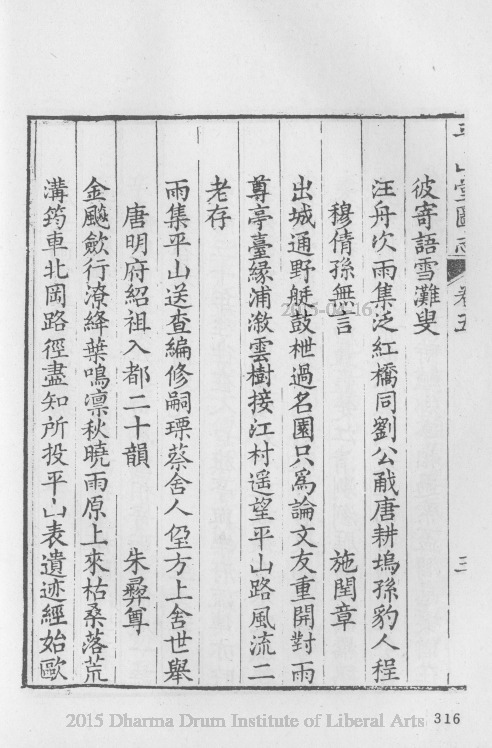 平山堂圖志 卷五 三
彼寄語雪灘叟
汪舟次雨集泛紅橋同劉公㦷唐耕塢孫豹人程
穆倩孫無言 施閏章
出城通野艇鼓枻過名園只為論文友重開對雨
尊亭臺緣浦漵雲樹接江村遥望平山路風流二
老存
雨集平山送查編修嗣瑮蔡舍人㘴方上舍世舉
唐明府紹祖入都二十韻 朱彛尊
金飈斂行潦絳葉鳴凛秋曉雨原上來枯桑落荒
溝筠車北岡路徑盡知所投平山表遺迹經始歐
2015-04-16
2015 Dharma Drum Institute of Liberal Arts
316